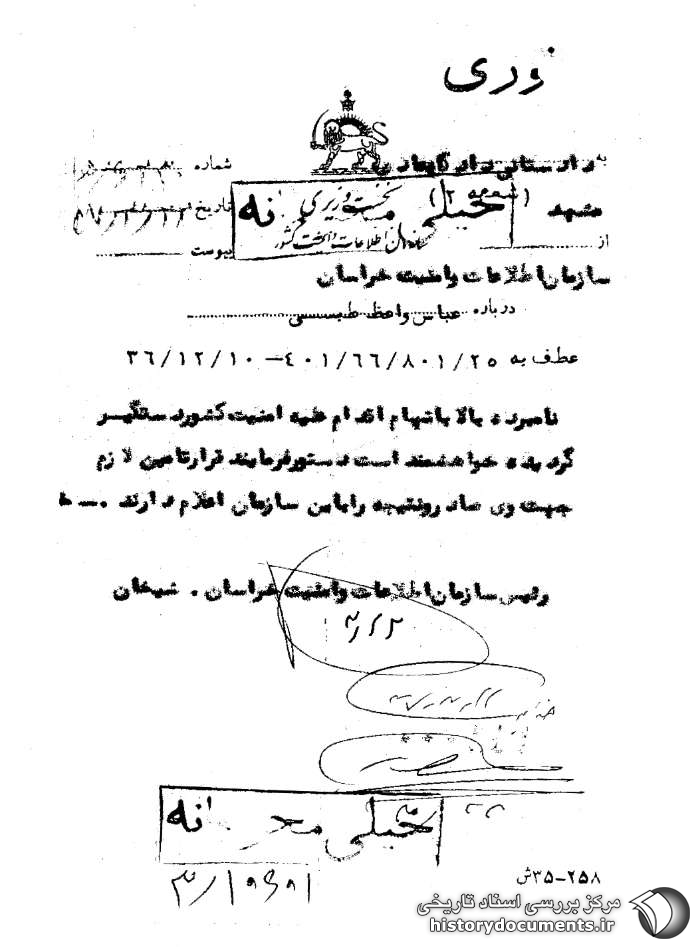 فوری
به دادستانی دادگاه عادی
(شعبه ۲) مشهد
نخست وزیری
سازمان اطلاعات و امنیت کشور
خیلی محرمانه
شماره
تاریخ
پیوست
از
سازمان اطلاعات و امنیت خراسان
درباره عباس واعظ طبسی
عطف به ۴۰۱/۶۶/۸۰۱/۲۵ – ۳۶/۱۲/۱۰
نامبرده بالا باتهام اقدام علیه امنیت کشور دستگیر
گردیده خواهشمند است دستور فرمایند قرار تامین لازم
جهت وی صادر و نتیجه را باین سازمان اعلام دارند .
رئیس سازمان اطلاعات و امنیت خراسان . شیخان
خیلی محرمانه
۲۵۸-۳۵ش
مرکز بررسی اسناد تاریخی
historydocuments.ir